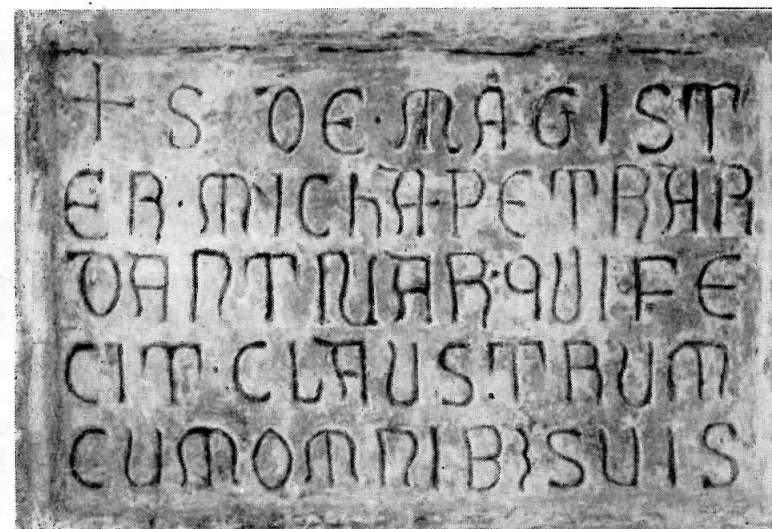 + S DE·MAGIST
ER·MICHA·PETRAR
DANTIUAR·QUI FE
CIT·CLAUS·TRUM
CUM OMNIB; SUIS